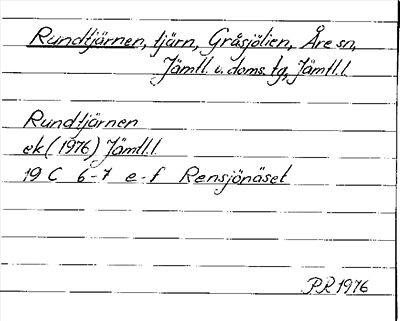 Rundtjärnen, tjärn, Gråsjölien, Åre sn,
Jämtl. v. doms. tg, Jämtl. l.
Rundtjärnen
ek (1976) Jämtl. l.
19 C 6-7 e-f Rensjönäset
PR 1976